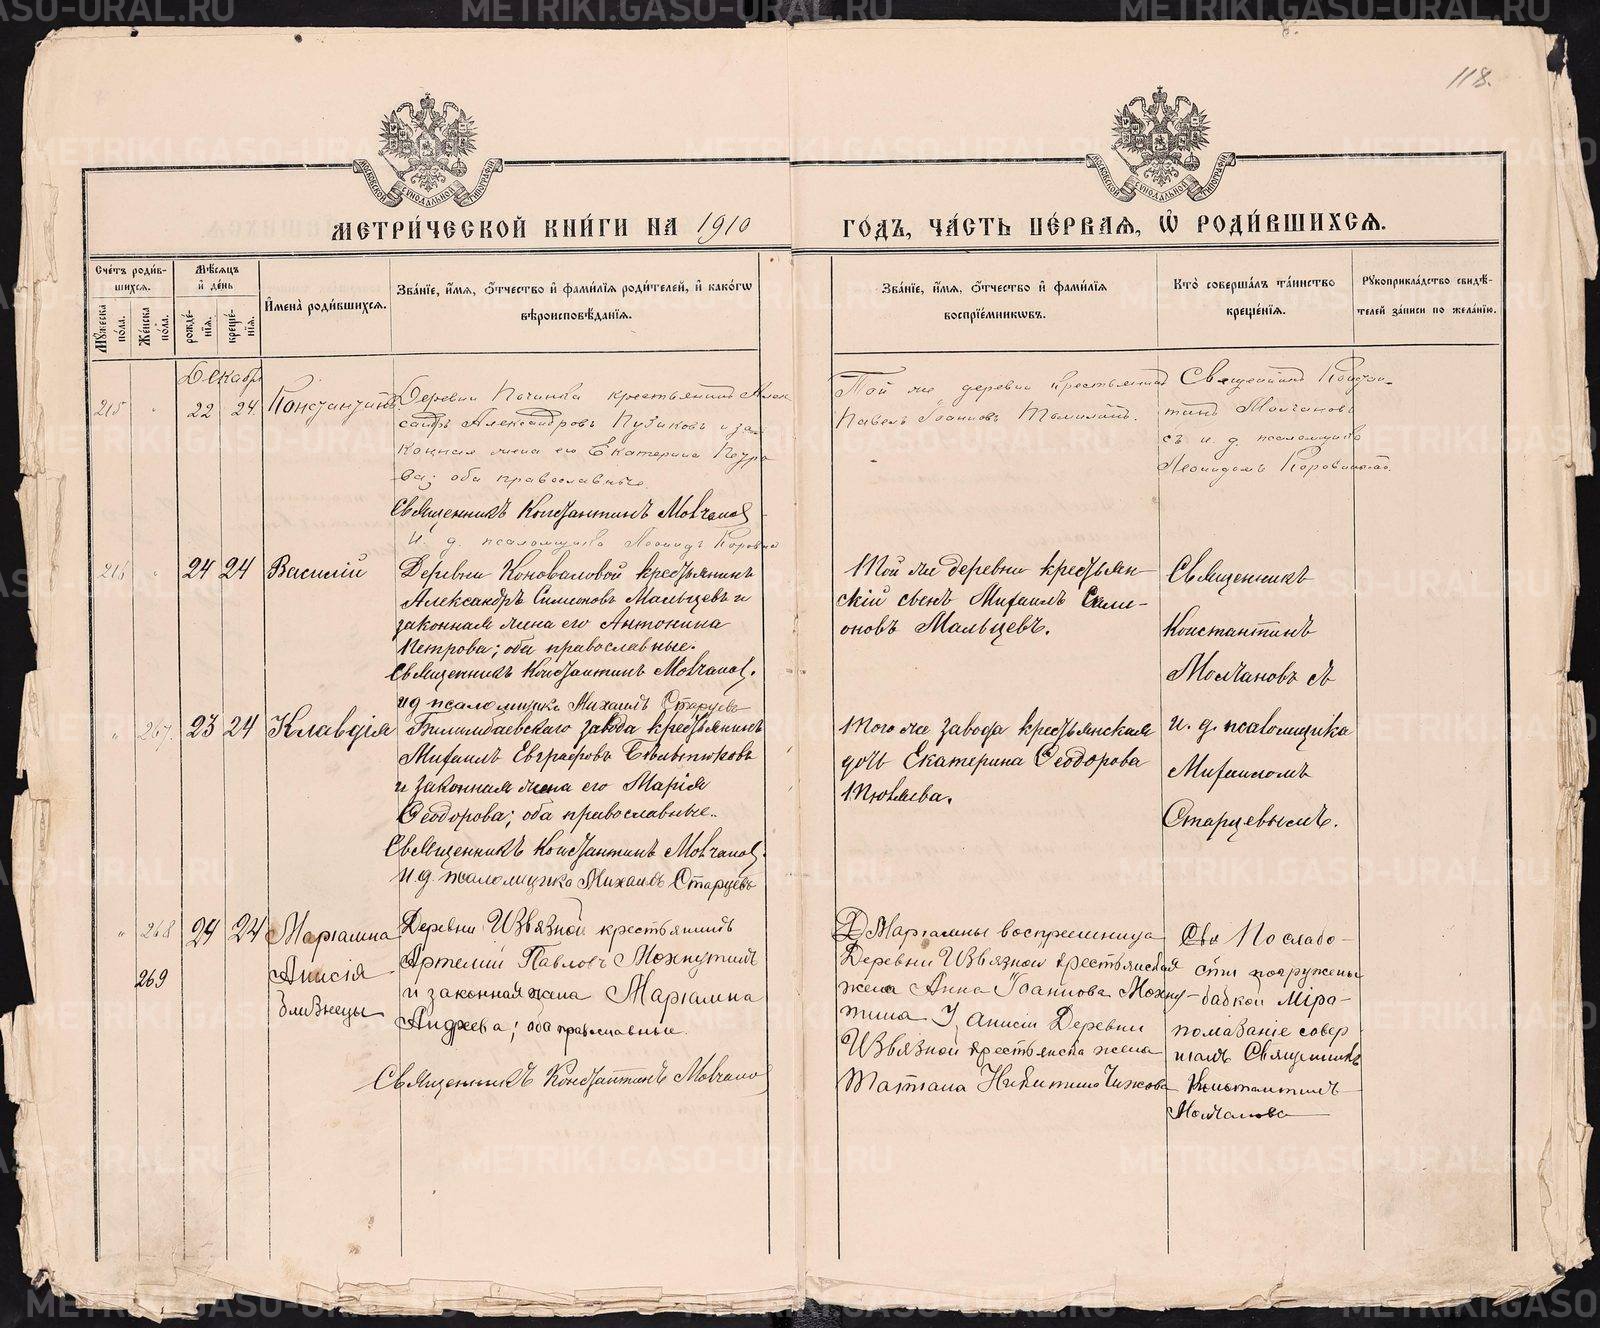 118.
МОСКОВСКОЙ СѴНОДАЛЬНОЙ ТИПОГРАФІИ
МОСКОВСКОЙ СѴНОДАЛЬНОЙ ТИПОГРАФІИ
МЕТРИ́ЧЕСКОЙ КНИ́ГИ НА 1910 ГО́ДЪ, ЧА́СТЬ ПЕ́РВАЯ, Ѽ РОДИ́ВШИХСЯ.
Сче́тъ роди́в-
шихся.
Мꙋ́жеска по́ла.
Же́нска по́ла.
Мѣ́сяцъ
и҆ де́нь
рожде́-нїя.
креще́-нїя.
И҆мена̀ роди́вшихся.
Зва́нїе, и҆́мя, ѻ҆́тчество и҆ фами́лїя роди́телей, и҆ како́гѡ
вѣроисповѣ́данїя.
Зва́нїе, и҆́мя, ѻ҆́тчество и҆ фами́лїя
воспрїе́мникѡвъ.
Кто̀ соверша́лъ та́инство
креще́нїя.
Рꙋкоприкла́дство свидѣ́-
телей за́писи по жела́нїю.
Декабрь
215 " 22 24 Константинъ
Деревни Починка крестьянинъ Алек
сандръ Александровъ Пузиковъ и за-
конная жена его Екатерина Петро
ва; оба православные.
Священникъ Константинъ Молчановъ
И. д. псаломщика Леонидъ Коровин
Той же деревни крестьянинъ
Павелъ Іоанновъ Томилинъ.
Священникъ Констан-
тинъ Молчановъ
съ и. д. псаломщика
Леонидомъ
216 " 24 24 Василій
Деревни Коноваловой крестьянинъ
Александръ Симеоновъ Мальцевъ и
законная жена его Антонина
Петрова; оба православные.
Священникъ Константинъ Молчанов.
и д псаломщика Михаилъ Старцевъ
Той же деревни крестьян-
скій сынъ Михаилъ Симе-
оновъ Мальцевъ.
Священникъ
Константинъ
Молчановъ съ
и. д. псаломщика
Михаиломъ
Старцевымъ.
" 267. 23 24 Клавдія
Билимбаевскаго завода крестьянинъ
Михаилъ Евграфовъ
и законная жена его Марія
Ѳеодорова; оба православные.
Священникъ Константинъ Молчанов.
И д. псаломщика Михаилъ Старцевъ
Того же завода крестьянская
дочь Екатерина Ѳеодорова
" 268 24 24 Маріамна
269 Анисія
близнецы
Деревни Извязной крестьянинъ
Артемій Павловъ Мохнуткинъ
и законная жена Маріамна
Андреева; оба православные.
Священникъ Константинъ Молчанов
Маріамны воспреемница
Деревни Извязной крестьянская
жена Анна Іоаннова Мохну-
ткина У Анисіи Деревни
Извязной крестьянска жена
Татіана Никитина Чижова
По слабо-
сти погружены
бабкой Міро-
помазаніе совер
шалъ Священникъ
Константинъ
Молчановъ
METRIKI.GASO-URAL.RU